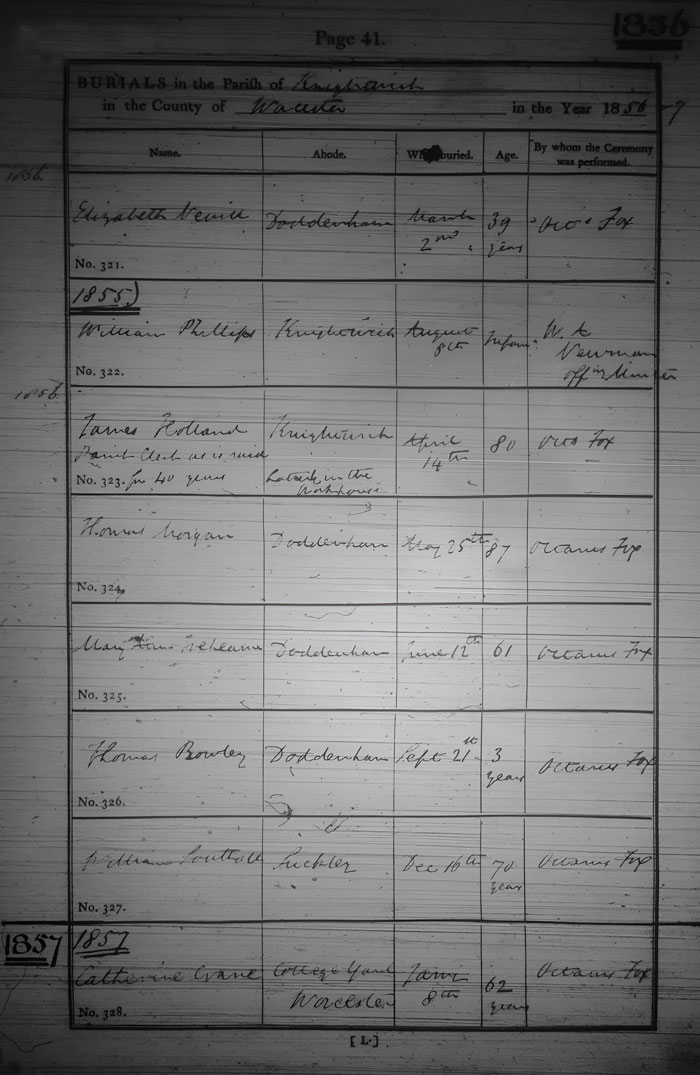 1856
Page 41.
BURIALS in the Parish of Knightwick
in the County of Worcester in the Year 1856-7
Name. Abode. When buried. Age. By whom the Ceremony was performed.
1856.
Elizabeth Nevill Doddenham March 2nd 39 years Octs Fox
No. 321.
1855)
William Phillips Knightwick August 8th Infant W. A. Newman offg Minister
No. 322.
1856
James Holland Knightwick April 14th 80 Octs Fox
Parish Clerk as is said
No. 323. for 40 years Latterly in the Workhouse
Thomas Morgan Doddenham May 25th 87 Octavus Fox
No. 324.
Mary Ann Trehearn Doddenham June 12th 61 Octavus Fox
No. 325.
Thomas Bowley Doddenham Sept 21st 3 years Octavus Fox
No. 326.
William Southall Suckley Dec 16th 70 years Octavus Fox
No. 327.
1857 1857
Catherine Crane College Yard Worcester Jany 8th 62 years Octavus Fox
No. 328.
[ L. ]